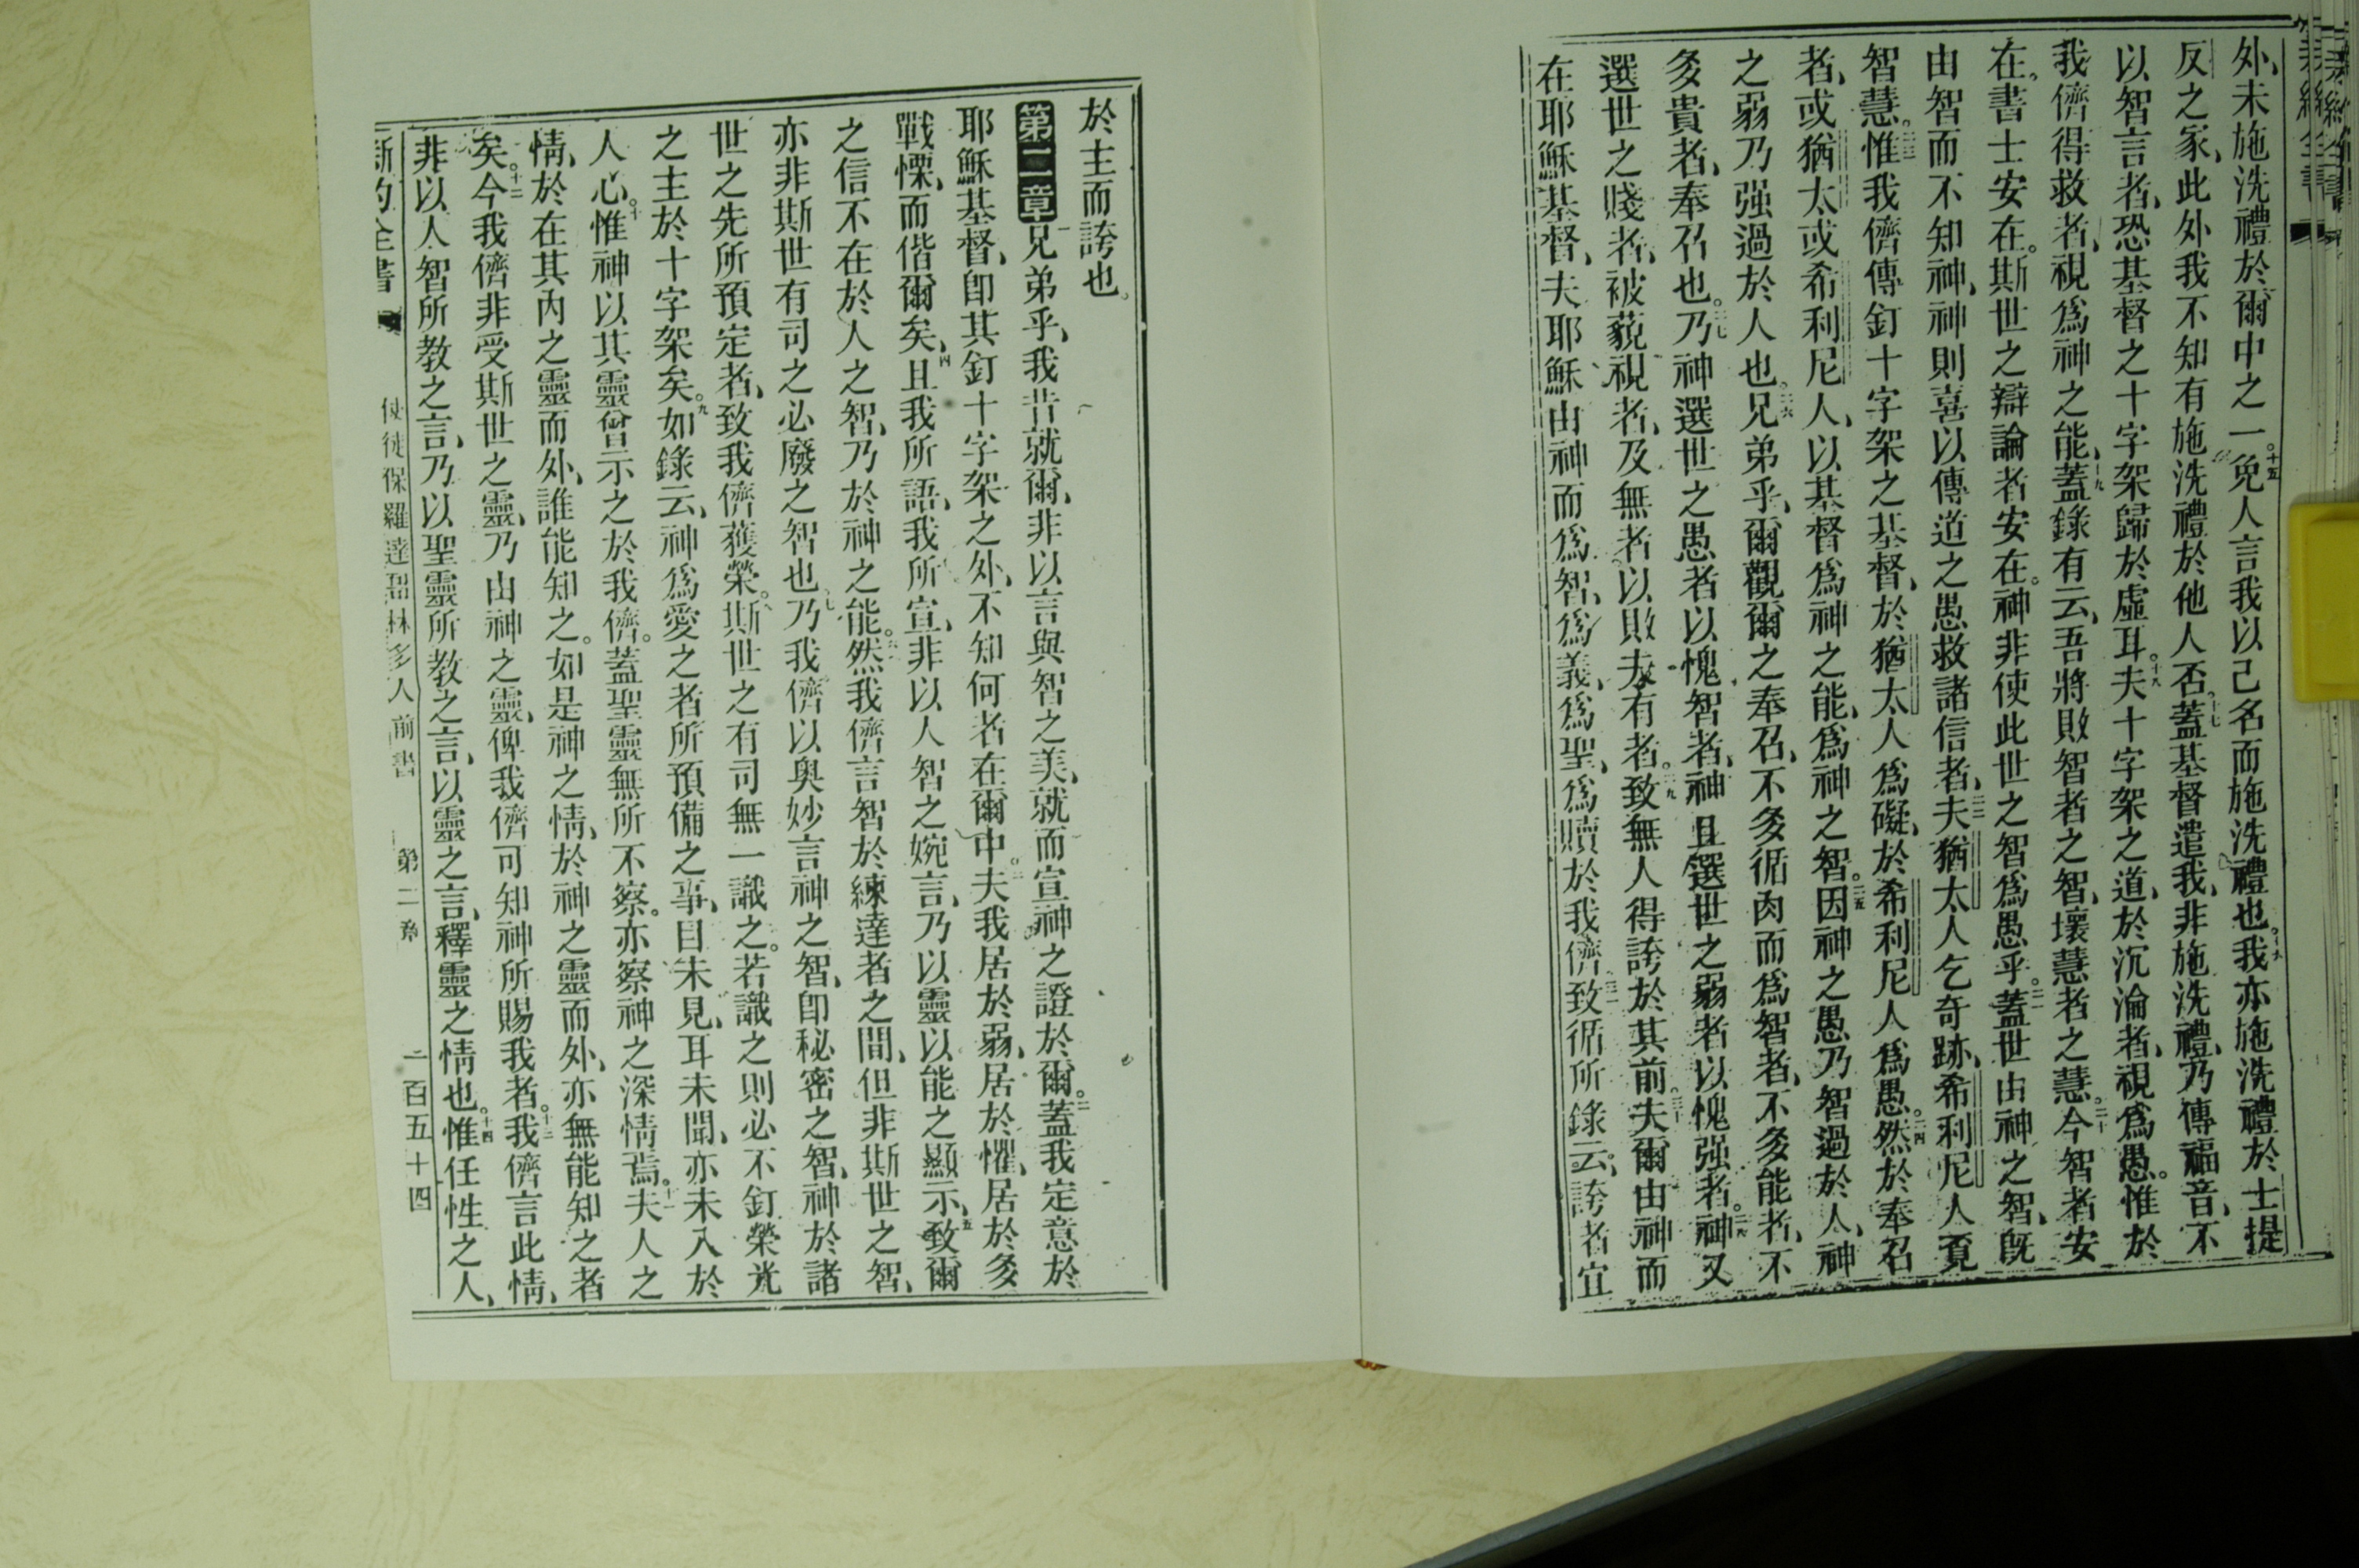 外、未施洗禮於爾中之一。十五免人言我以己名而施洗禮也。十六我亦施洗禮於士提
反之家、此外我不知有施洗禮於他人否。十七蓋基督遣我、非施洗禮、乃傳福音、不
以智言者、恐基督之十字架歸於虛耳。十八夫十字架之道、於沉淪者、視爲愚。惟於
我儕得救者、視爲神之能。十九蓋錄有云、吾將敗智者之智、壞慧者之慧。二十今智者安
在。書士安在。斯世之辯論者安在。神非使此世之智爲愚乎。二一蓋世由神之智、旣
由智而不知神、神則喜以傳道之愚救諸信者、二二夫猶太人乞奇跡、希利尼人覔
智慧。二三惟我儕傳釘十字架之基督、於猶太人爲礙、於希利尼人爲愚。二四然於奉召
者、或猶太或希利尼人、以基督爲神之能、爲神之智。二五因神之愚乃智過於人、神
之弱乃强過於人也。二六兄弟乎、爾觀爾之奉召、不多循肉而爲智者、不多能者、不
多貴者、奉召也。二七乃神選世之愚者以愧智者、神且選世之弱者以愧强者。二八神又
選世之賤者、被藐視者、及無者。以敗夫有者。二九致無人得誇於其前。三十夫爾由神而
在耶穌基督、夫耶穌由神而爲智、爲義、爲聖、爲贖於我儕、三一致循所錄云、誇者宜
於主而誇也。
第二章 兄弟乎、我昔就爾、非以言與智之美、就而宣神之證於爾。二蓋我定意於
耶穌基督、卽其釘十字架之外、不知何者在爾中。三夫我居於弱、居於懼、居於多
戰慄、而偕爾矣、四且我所語、我所宣、非以人智之婉言、乃以靈以能之顯示、五致爾
之信不在於人之智、乃於神之能。六然我儕言智於練達者之間、但非斯世之智、
亦非斯世有司之必廢之智也、七乃我儕以奧妙言神之智、卽秘密之智、神於諸
世之先所預定者、致我儕獲榮。八斯世之有司無一識之。若識之則必不釘榮光
之主於十字架矣。九如錄云、神爲愛之者所預備之事、目未見、耳未聞、亦未入於
人心。十惟神以其靈曾示之於我儕。蓋聖靈無所不察。亦察神之深情焉。十一夫人之
情、於在其內之靈而外、誰能知之。如是神之情、於神之靈而外、亦無能知之者
矣。十二今我儕非受斯世之靈、乃由神之靈、俾我儕可知神所賜我者。十三我儕言此情、
非以人智所教之言、乃以聖靈所教之言、以靈之言、釋靈之情也。十四惟任性之人、
新約全書 使徒保羅達哥林多人前書 第二章 二百五十四